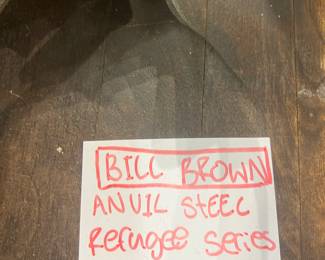 BILL BROWN
ANVIL STEEL
Refugee Series